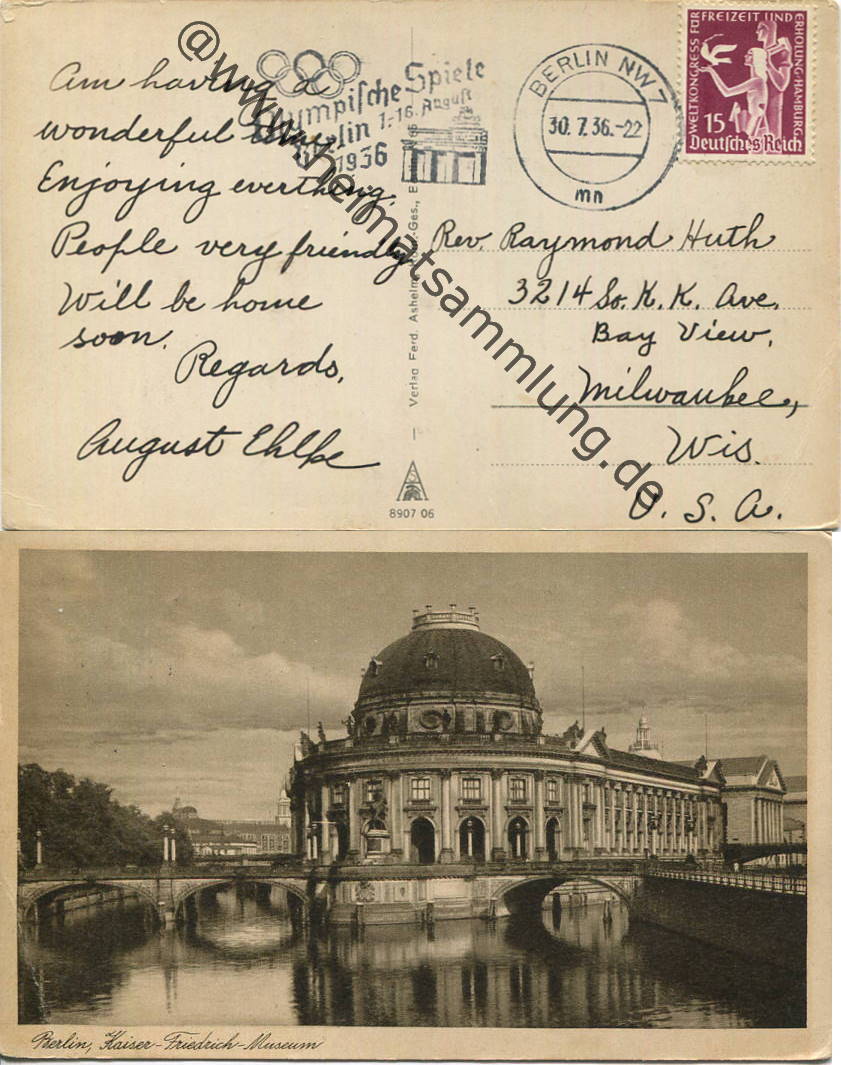 Am having a
wonderful time
Enjoying everthing.
People very friendly
Will be home
soon.
Regards,
August Ehlke
Olympische Spiele
Berlin 1.-16. August
1936
BERLIN NW 7
30. 7. 36.-22
mn
WELTKONGRESS FÜR FREIZEIT UND ERHOLUNG·HAMBURG
15
Deutsches Reich
Rev. Raymond Huth
3214 So. K. K. Ave.
Bay View.
Milwaukee,
Wis.
U. S. A.
Verlag Ferd. Ashelm
Ges.,
8907 06
@www.heimatsammlung.de
Berlin, Kaiser-Friedrich-Museum